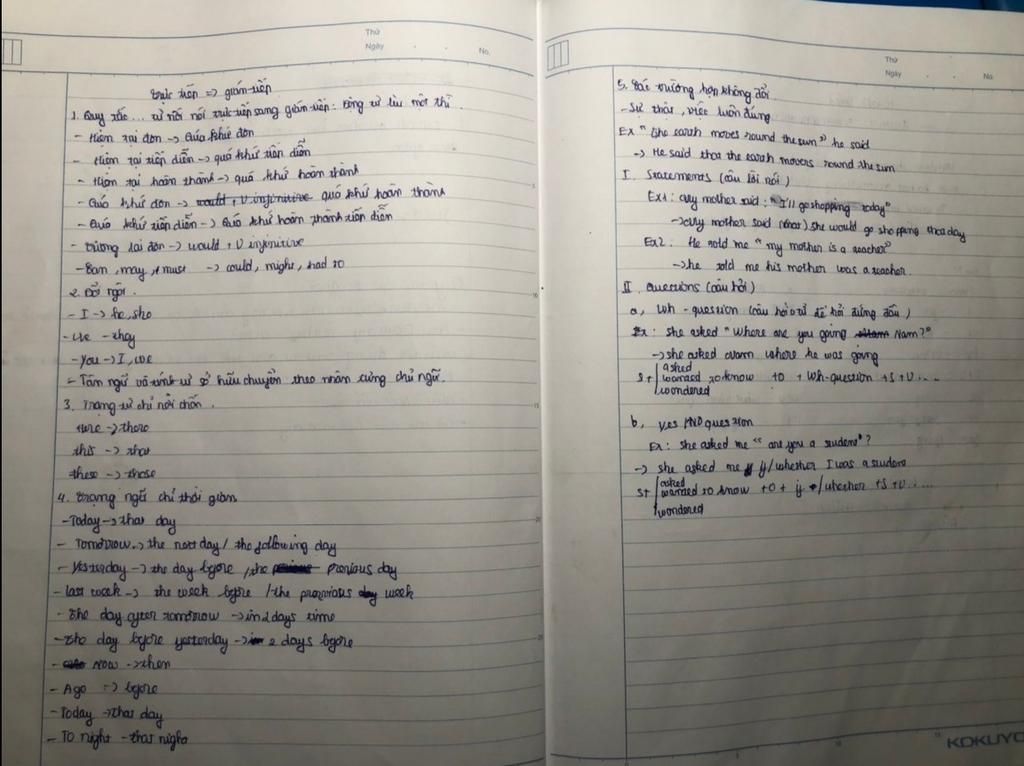 Thứ
Ngày . . No.
trực tiếp => gián tiếp
1. Quy tắc ... từ rồi nói trực tiếp sang gián tiếp: Động từ lùi một thì.
- Hiện tại đơn -> Quá khứ đơn
- Hiện tại tiếp diễn -> quá khứ tiếp diễn
- Hiện tại hoàn thành -> quá khứ hoàn thành
- Quá khứ đơn -> would + V infinitive quá khứ hoàn thành
- Quá khứ tiếp diễn -> Quá khứ hoàn thành tiếp diễn
- tương lai đơn -> would + V infinitive
- Can, may, must -> could, might, had to
2. Đổi ngôi.
- I -> he, she
- We - they
- You -> I, we
- Tân ngữ và tính từ sở hữu chuyển theo nhân xưng chủ ngữ.
3. Trạng từ chỉ nơi chốn.
Here -> there
this -> that
these -> those
4. Trạng ngữ chỉ thời gian
- Today -> that day
- Tomorrow -> the next day / the following day
- Yesterday -> the day before / the previous day
- last week -> the week before / the previous week
- The day after tomorrow -> in 2 days time
- The day before yesterday -> 2 days before
- Now -> then
- Ago -> before
- Today -> that day
- To night - that night
Thứ
Ngày . . No.
5. Các trường hợp không đổi
- Sự thật, việc luôn đúng
Ex "The earth moves round the sun" he said
-> He said that the earth movers round the sun
I. Statements (câu lời nói)
Ex1: My mother said: "I'll go shopping today"
-> My mother said (that) she would go shopping that day
Ex2: He told me "my mother is a teacher"
-> he told me his mother was a teacher.
II. Questions (câu hỏi)
a, Wh - question (câu hỏi từ để hỏi đứng đầu)
Ex: She asked "Where are you going Nam?"
-> she asked Nam where he was going
S + asked
wanted to know + O + Wh-question + S + V ...
wondered
b, Yes/NO question
Ex: She asked me "are you a student"?
-> she asked me if/whether I was a student
S + asked
wanted to know + O + if / whether + S + V ...
wondered
KOKUYO